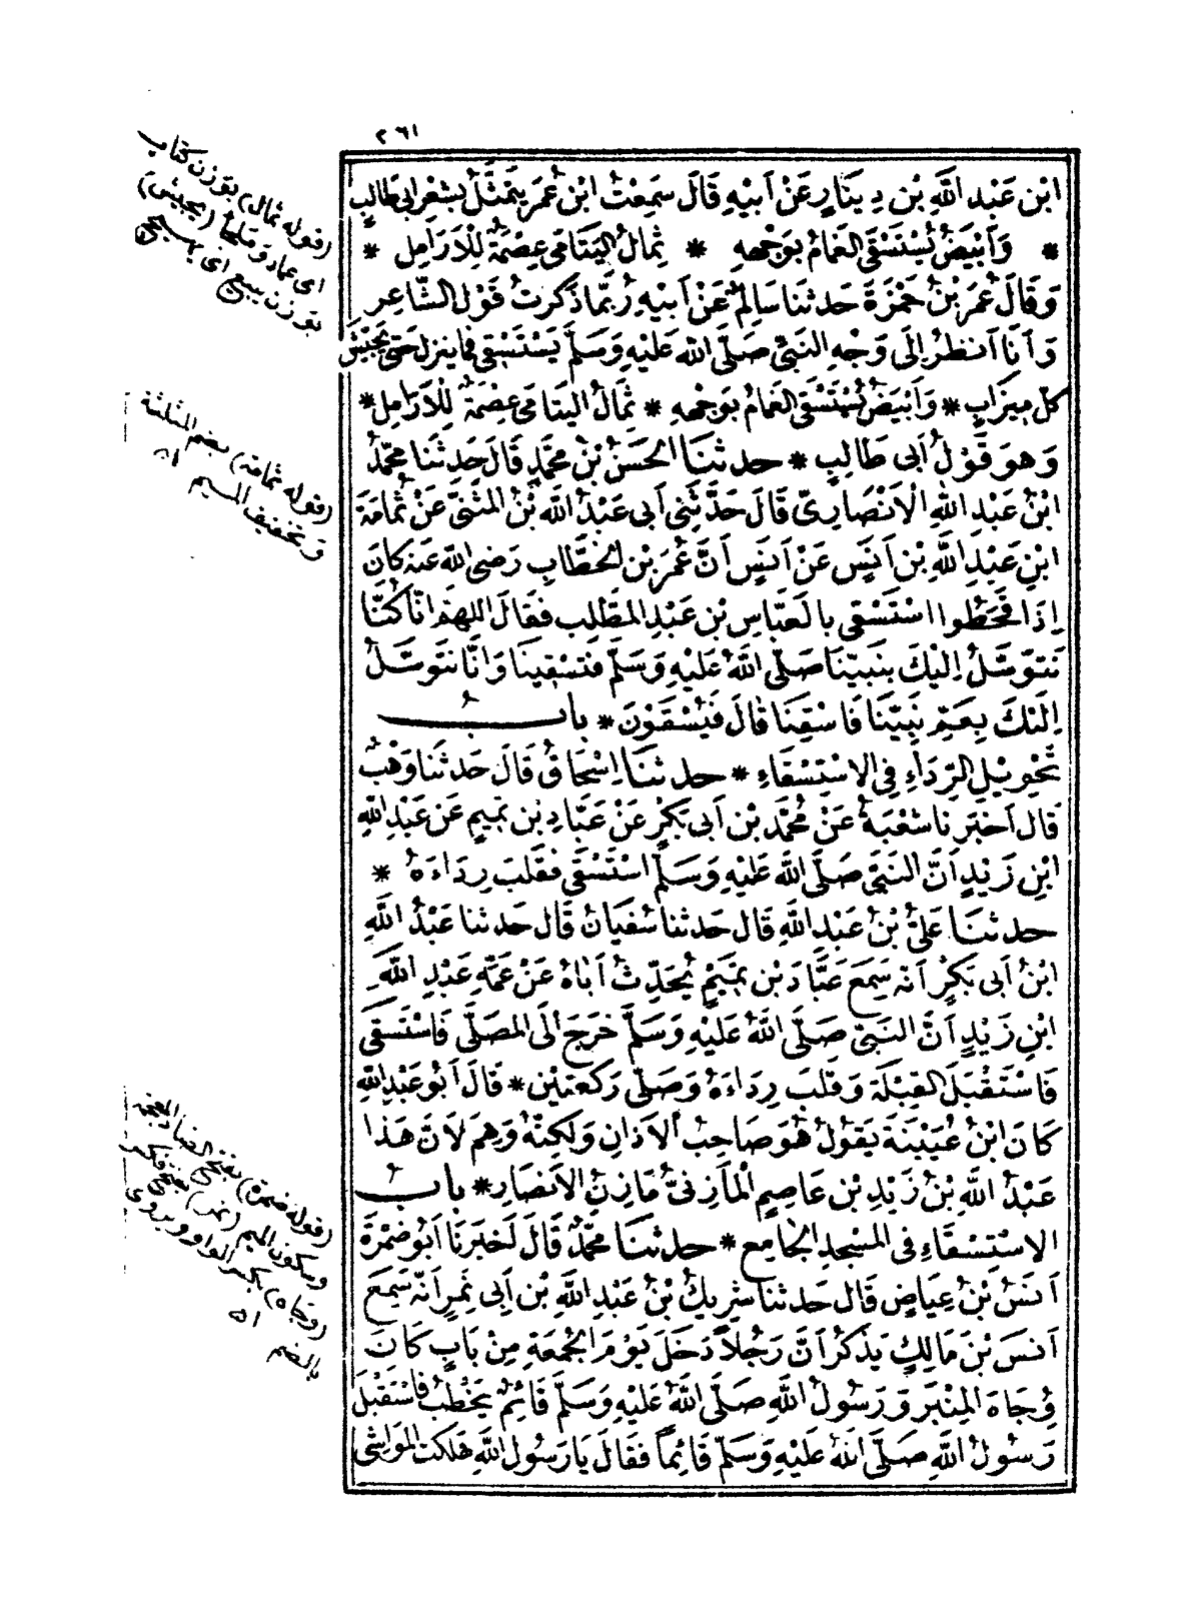 ٢٦١
ابْنِ عَبْدِ اللَّهِ بْنِ دِينَارٍ عَنْ أَبِيهِ قَالَ سَمِعْتُ ابْنَ عُمَرَ يَتَمَثَّلُ بِشِعْرِ أَبِي طَالِبٍ
* وَأَبْيَضُ يُسْتَسْقَى الغَمَامُ بِوَجْهِهِ * ثِمَالُ الْيَتَامَى عِصْمَةٌ لِلْأَرَامِلِ *
وَقَالَ عُمَرُ بْنُ حَمْزَةَ حَدثنَا سَالِمٌ عَنْ أَبِيهِ رُبَّمَا ذَكَرْتُ قَوْلَ الشَّاعِرِ
وَأَنَا أَنْظُرُ إِلَى وَجْهِ النَّبِيِّ صَلَّى اللَّهُ عَلَيْهِ وَسَلَّمَ يَسْتَسْقِي فَمَا يَنْزِلُ حَتَّى يَجِيشَ
كُلُّ مِيزَابٍ * وَأَبْيَضُ يُسْتَسْقَى الغَمَامُ بِوَجْهِهِ * ثِمَالُ الْيَتَامَى عِصْمَةٌ لِلْأَرَامِلِ *
وَهُوَ قَوْلُ أَبِي طَالِبٍ * حدثنَا الحَسَنُ بْنُ مُحَمَّدٍ قَالَ حَدثنَا مُحَمَّدُ
ابْنُ عَبْدِ اللَّهِ الْأَنْصَارِيُّ قَالَ حَدَّثَنِي أَبِي عَبْدُ اللَّهِ بْنُ المُثَنَّى عَنْ ثُمَامَةَ
ابْنِ عَبْدِ اللَّهِ بْنِ أَنَسٍ عَنْ أَنَسٍ أَنَّ عُمَرَ بْنَ الخَطَّابِ رَضِيَ اللَّهُ عَنْهُ كَانَ
إِذَا قَحَطُوا اسْتَسْقَى بِالعَبَّاسِ بْنِ عَبْدِ المُطَّلِبِ فَقَالَ اللهُمَّ إِنَّا كُنَّا
نَتَوَسَّلُ إِلَيْكَ بِنَبِيِّنَا صَلَّى اللَّهُ عَلَيْهِ وَسَلَّمَ فَتَسْقِينَا وَإِنَّا نَتَوَسَّلُ
إِلَيْكَ بِعَمِّ نَبِيِّنَا فَاسْقِنَا قَالَ فَيُسْقَوْنَ * بابُ
تَحْوِيلِ الرِّدَاءِ فِي الاِسْتِسْقَاءِ * حدثنَا إِسْحَاقُ قَالَ حَدثنَا وَهْبٌ
قَالَ أَخْبَرَنَا شُعْبَةُ عَنْ مُحَمَّدِ بْنِ أَبِي بَكْرٍ عَنْ عَبَّادِ بْنِ تَمِيمٍ عَنْ عَبْدِ اللَّهِ
ابْنِ زَيْدٍ أَنَّ النَّبِيَّ صَلَّى اللَّهُ عَلَيْهِ وَسَلَّمَ اسْتَسْقَى فَقَلَبَ رِدَاءَهُ *
حدثنَا عَلِيُّ بْنُ عَبْدِ اللَّهِ قَالَ حَدثنَا سُفْيَانُ قَالَ حَدثنَا عَبْدُ اللَّهِ
ابْنُ أَبِي بَكْرٍ أَنَّهُ سَمِعَ عَبَّادَ بْنَ تَمِيمٍ يُحَدِّثُ أَبَاهُ عَنْ عَمِّهِ عَبْدِ اللَّهِ
ابْنِ زَيْدٍ أَنَّ النَّبِيَّ صَلَّى اللَّهُ عَلَيْهِ وَسَلَّمَ خَرَجَ إِلَى المُصَلَّى فَاسْتَسْقَى
فَاسْتَقْبَلَ القِبْلَةَ وَقَلَبَ رِدَاءَهُ وَصَلَّى رَكْعَتَيْنِ * قَالَ أَبُو عَبْدِ اللَّهِ
كَانَ ابْنُ عُيَيْنَةَ يَقُولُ هُوَ صَاحِبُ الأَذَانِ وَلَكِنَّهُ وَهِمَ لِأَنَّ هَذَا
عَبْدُ اللَّهِ بْنُ زَيْدِ بْنِ عَاصِمٍ المَازِنِيُّ مَازِنُ الأَنْصَارِ * بابُ
الاِسْتِسْقَاءِ فِي المَسْجِدِ الجَامِعِ * حدثنَا مُحَمَّدٌ قَالَ أَخْبَرَنَا أَبُو ضَمْرَةَ
أَنَسُ بْنُ عِيَاضٍ قَالَ حَدثنَا شَرِيكُ بْنُ عَبْدِ اللَّهِ بْنِ أَبِي نَمِرٍ أَنَّهُ سَمِعَ
أَنَسَ بْنَ مَالِكٍ يَذْكُرُ أَنَّ رَجُلاً دَخَلَ يَوْمَ الجُمُعَةِ مِنْ بَابٍ كَانَ
وِجَاهَ المِنْبَرِ وَرَسُولُ اللَّهِ صَلَّى اللَّهُ عَلَيْهِ وَسَلَّمَ قَائِمٌ يَخْطُبُ فَاسْتَقْبَلَ
رَسُولَ اللَّهِ صَلَّى اللَّهُ عَلَيْهِ وَسَلَّمَ قَائِمًا فَقَالَ يَا رَسُولَ اللَّهِ هَلَكَتِ المَوَاشِي
(قوله ثمال) بوزن كتاب
اى عماد وملجأ (يجيش)
بوزن يبيع اى يهيج
(قوله ثمامة) بضم المثلثة
وتخفيف الميم اه
(قوله ضمرة) بفتح الضاد المعجمة
وسكون الميم (نمر) بفتح فكسر
(وجاه) بكسر الواو ويروى
بالضم اه